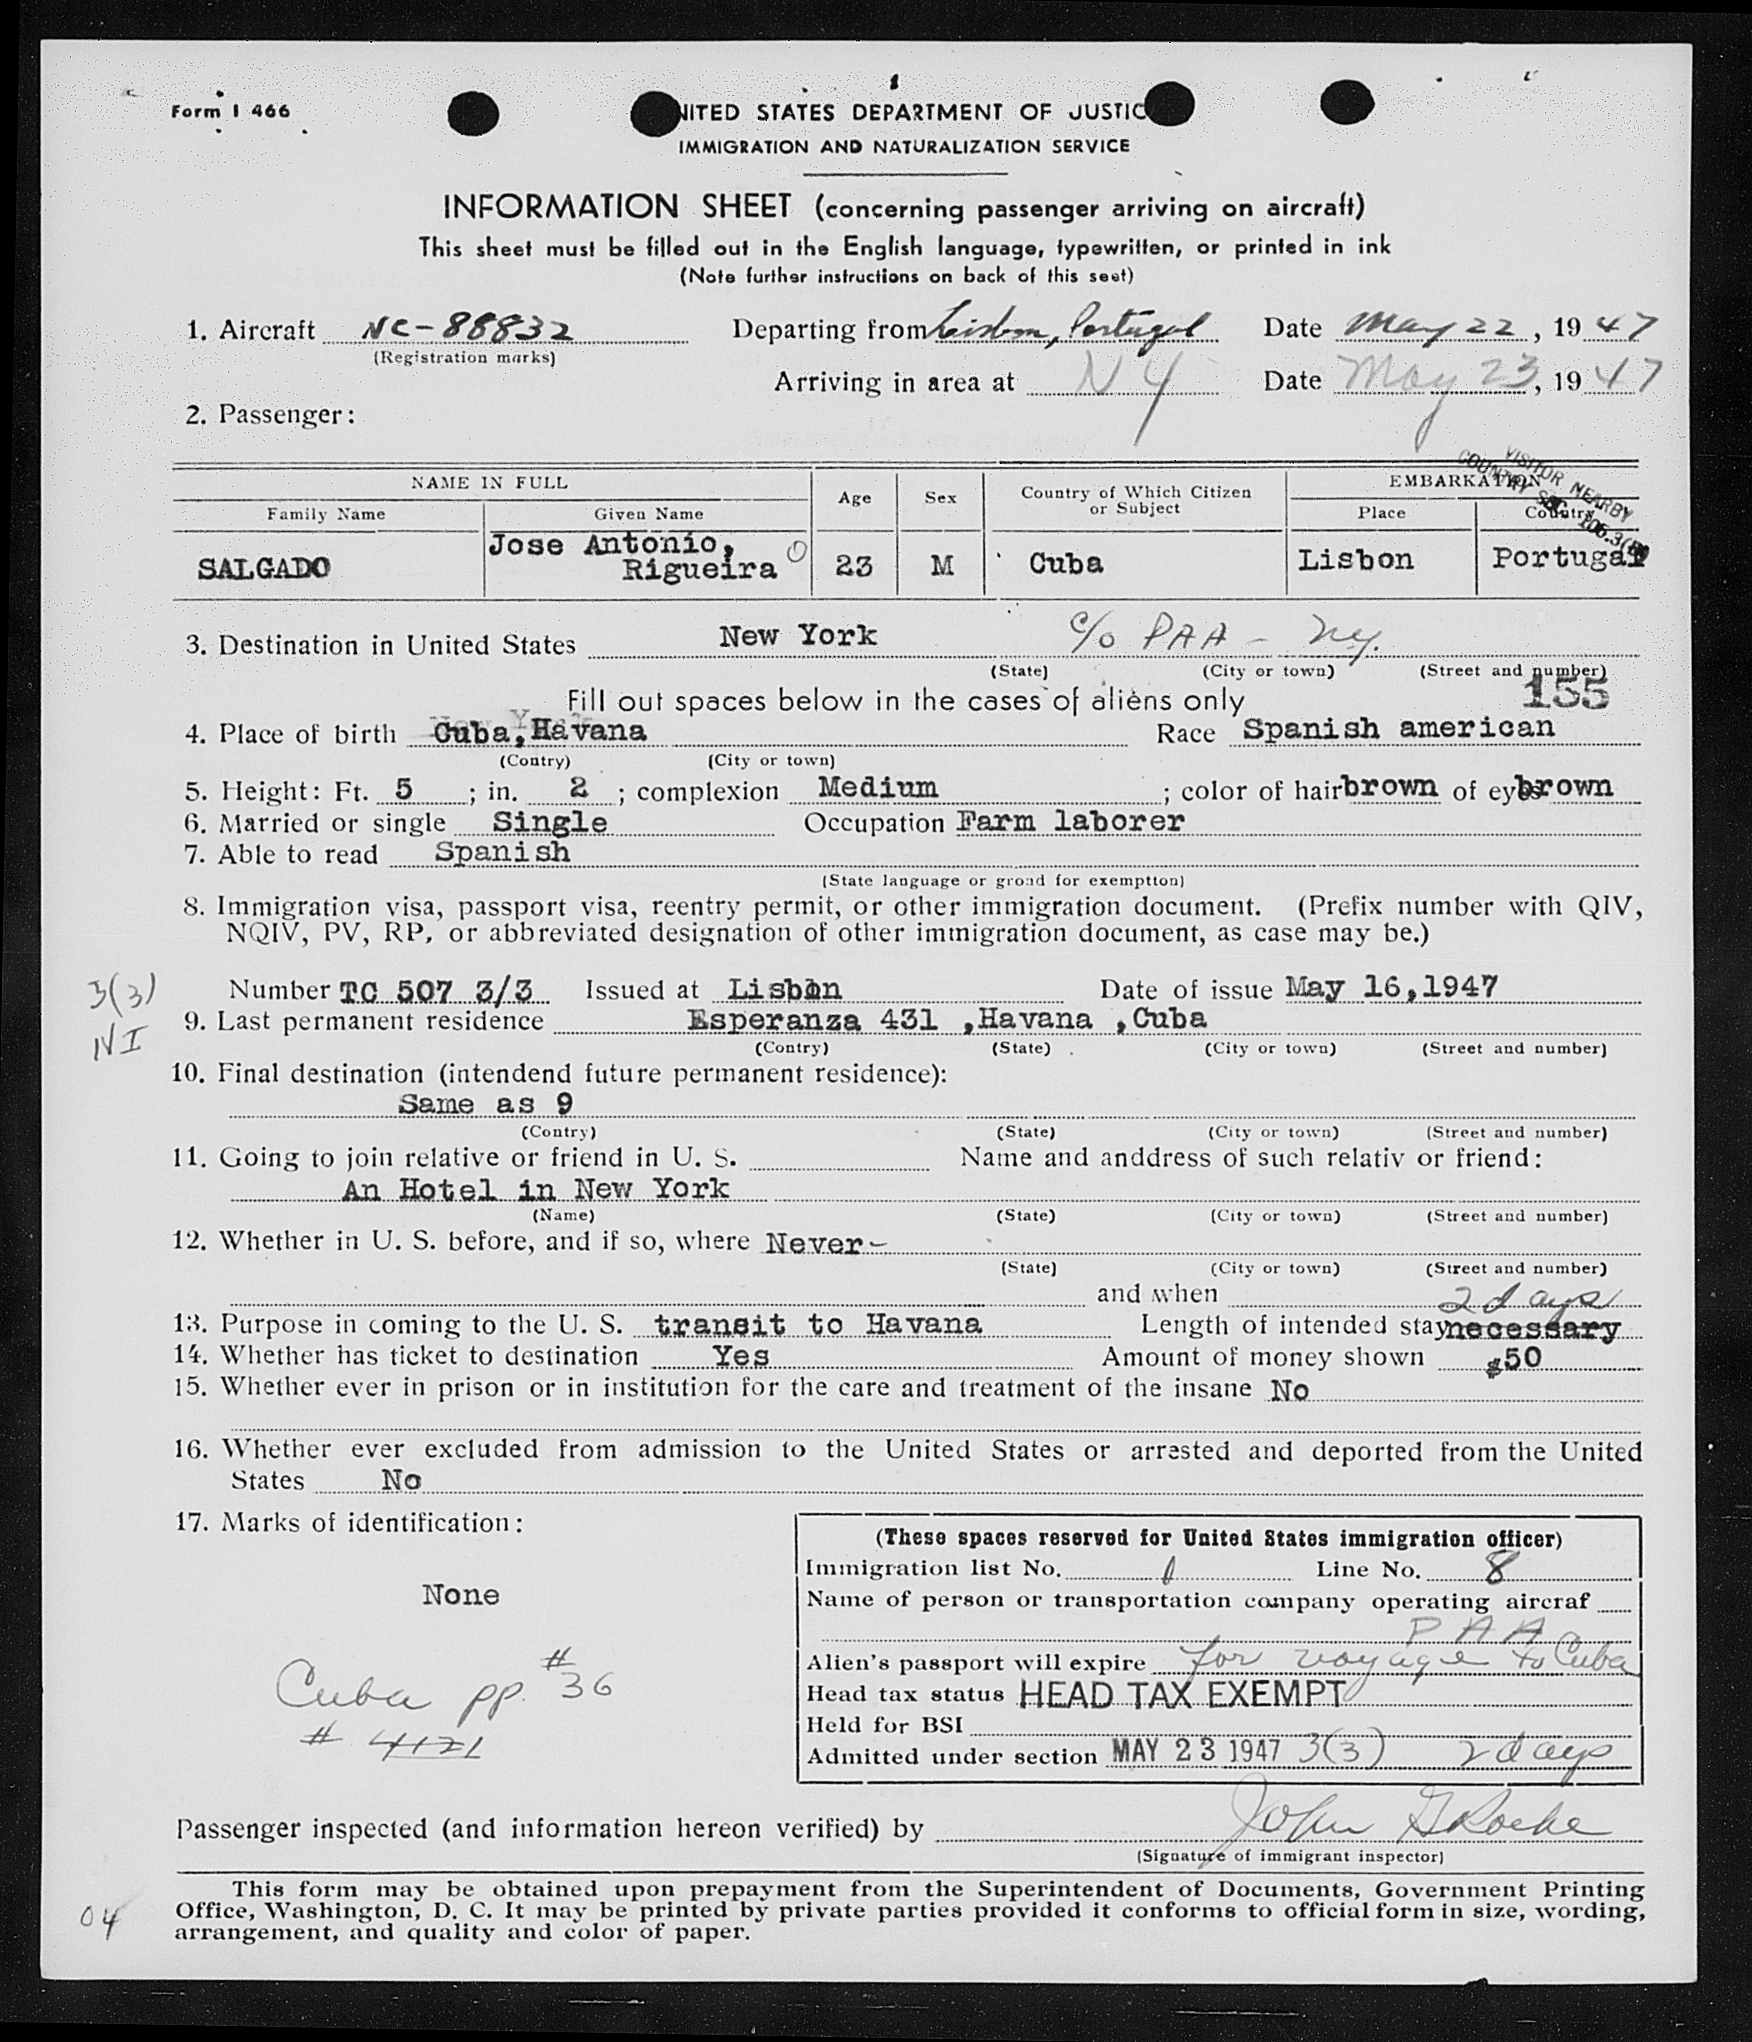 Form I 466
NITED STATES DEPARTMENT OF JUSTIC
IMMIGRATION AND NATURALIZATION SERVICE
INFORMATION SHEET (concerning passenger arriving on aircraft)
This sheet must be filled out in the English language, typewritten, or printed in ink
(Note further instructions on back of this seet)
1. Aircraft NC-88832 Departing from Lisbon, Portugal Date May 22, 1947
(Registration marks)
Arriving in area at NY Date May 23, 1947
2. Passenger:
VISITOR NEARBY
COUNTRY SEC.
NAME IN FULL Age Sex Country of Which Citizen or Subject EMBARKATION
Family Name Given Name Place Country
SALGADO Jose Antonio, Rigueira 23 M Cuba Lisbon Portugal
3. Destination in United States New York c/o PAA - NY.
(State) (City or town) (Street and number)
Fill out spaces below in the cases of aliens only 155
4. Place of birth Cuba, Havana Race Spanish american
(Contry) (City or town)
5. Height: Ft. 5 ; in. 2 ; complexion Medium ; color of hair brown of eyes brown
6. Married or single Single Occupation Farm laborer
7. Able to read Spanish
(State language or groud for exemptton)
8. Immigration visa, passport visa, reentry permit, or other immigration document. (Prefix number with QIV,
NQIV, PV, RP, or abbreviated designation of other immigration document, as case may be.)
3(3)
Number TC 507 3/3 Issued at Lisbon Date of issue May 16,1947
9. Last permanent residence Esperanza 431 ,Havana ,Cuba
NI
(Contry) (State) (City or town) (Street and number)
10. Final destination (intendend future permanent residence):
Same as 9
(Contry) (State) (City or town) (Street and number)
11. Going to join relative or friend in U. S. Name and anddress of such relativ or friend:
An Hotel in New York
(Name) (State) (City or town) (Street and number)
12. Whether in U. S. before, and if so, where Never-
(State) (City or town) (Street and number)
and when
2 days
13. Purpose in coming to the U. S. transit to Havana Length of intended stay necessary
14. Whether has ticket to destination Yes Amount of money shown $50
15. Whether ever in prison or in institution for the care and treatment of the insane No
16. Whether ever excluded from admission to the United States or arrested and deported from the United
States No
17. Marks of identification:
None
Cuba pp. #36
# 4121
(These spaces reserved for United States immigration officer)
Immigration list No. 1 Line No. 8
Name of person or transportation company operating aircraf
PAA
Alien's passport will expire for voyage to Cuba
Head tax status HEAD TAX EXEMPT
Held for BSI
Admitted under section MAY 23 1947 3(3) 2 days
Passenger inspected (and information hereon verified) by John G Roche
(Signature of immigrant inspector)
This form may be obtained upon prepayment from the Superintendent of Documents, Government Printing
Office, Washington, D. C. It may be printed by private parties provided it conforms to official form in size, wording,
arrangement, and quality and color of paper.
04